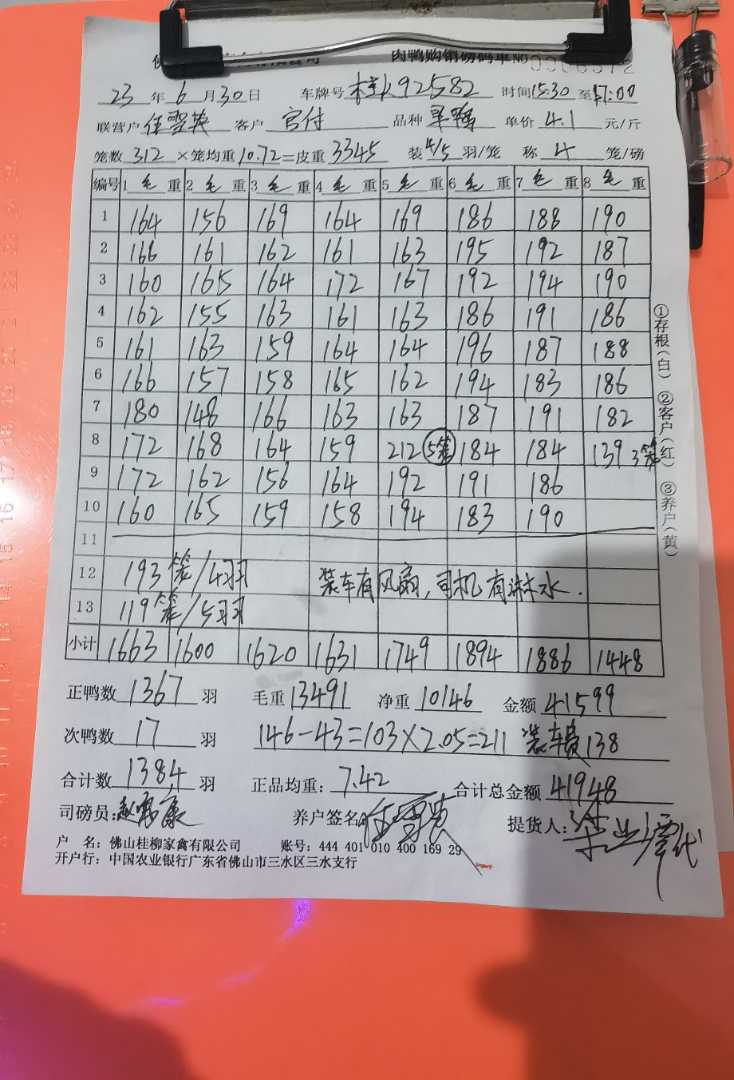 肉鸭购销磅码单 NO
23 年 6 月 30 日 车牌号 桂K92582 时间 15:30 至 17:00
联营户 任雪英 客户 宫付 品种 单价 4.1 元/斤
笼数 312 ×笼均重 10.72 =皮重 3345 装 4/5 羽/笼 称 4 笼/磅
编号 1 毛 重 2 毛 重 3 毛 重 4 毛 重 5 毛 重 6 毛 重 7 毛 重 8 毛 重
1 164 156 169 164 169 186 188 190
2 166 161 162 161 163 195 192 187
3 160 165 164 172 167 192 194 190
4 162 155 163 161 163 186 191 186
5 161 163 159 164 164 196 187 188
6 166 157 158 165 162 194 183 186
7 180 148 166 163 163 187 191 182
8 172 168 164 159 212 5笼 184 184 139 3笼
9 172 162 156 164 192 191 186
10 160 165 159 158 194 183 190
11
12 193笼/4羽 装车有风扇,司机有淋水.
13 119笼/5羽
小计 1663 1600 1620 1631 1749 1894 1886 1448
正鸭数 1367 羽 毛重 13491 净重 10146 金额 41599
次鸭数 17 羽 146-43=103×2.05=211 装车费138
合计数 1384 羽 正品均重: 7.42 合计总金额 41948
司磅员: 养户签名 任雪英 提货人:
户 名: 佛山桂柳家禽有限公司 账号: 444 401 010 400 169 29
开户行: 中国农业银行广东省佛山市三水区三水支行
①存根(白) ②客户(红) ③养户(黄)